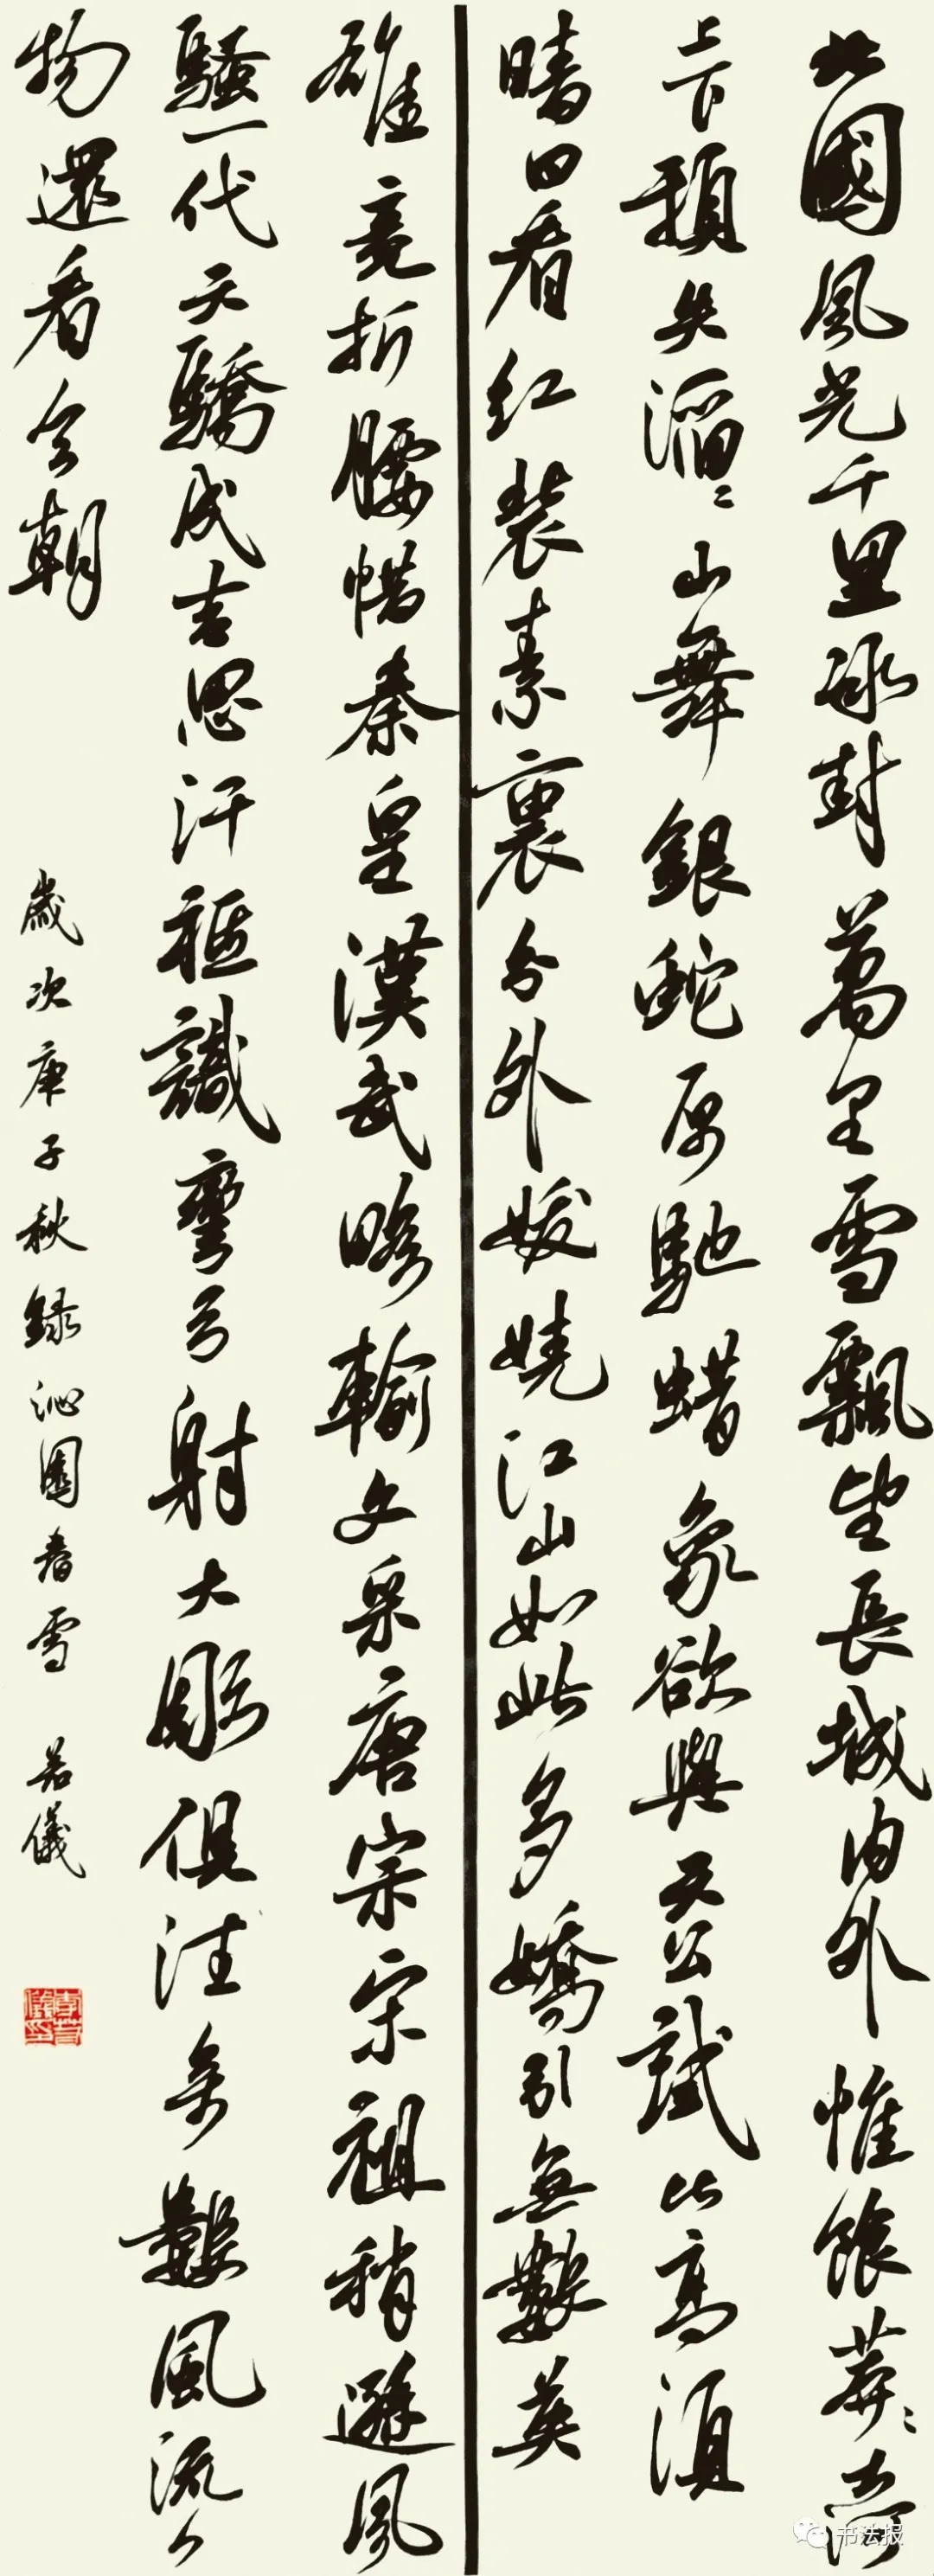 北國風光千里冰封萬里雪飄望長城內外惟餘莽〻大河
上下頓失滔〻山舞銀蛇原馳蜡象欲與天公試比高須
晴日看紅裝素裹分外妖嬈江山如此多嬌引無數英
雄竞折腰惜秦皇漢武略輸文采唐宗宋祖稍遜風
騷一代天驕成吉思汗祗識彎弓射大彫俱往矣數風流人
物還看今朝
歲次庚子秋錄沁園春雪 若儀
李若儀印
书法报